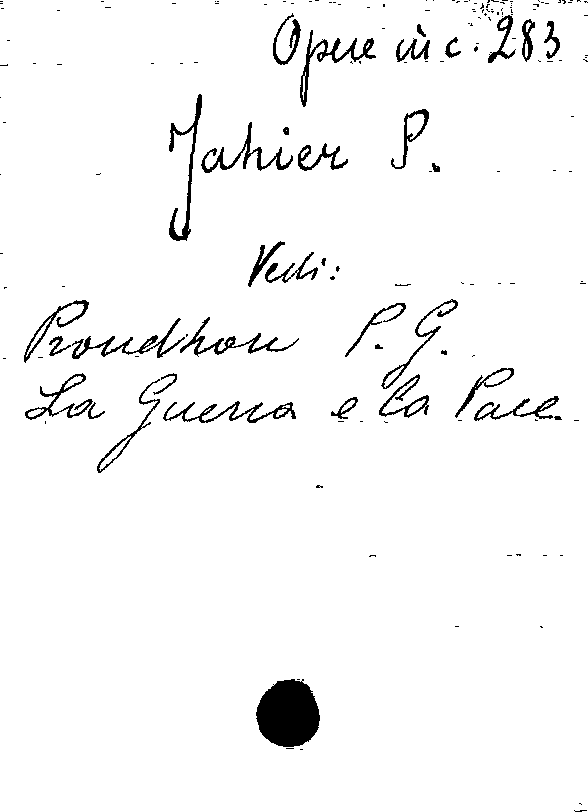 Opere in c. 283
Jahier P.
Vedi:
Proudhon P. G.
La Guerra e la Pace